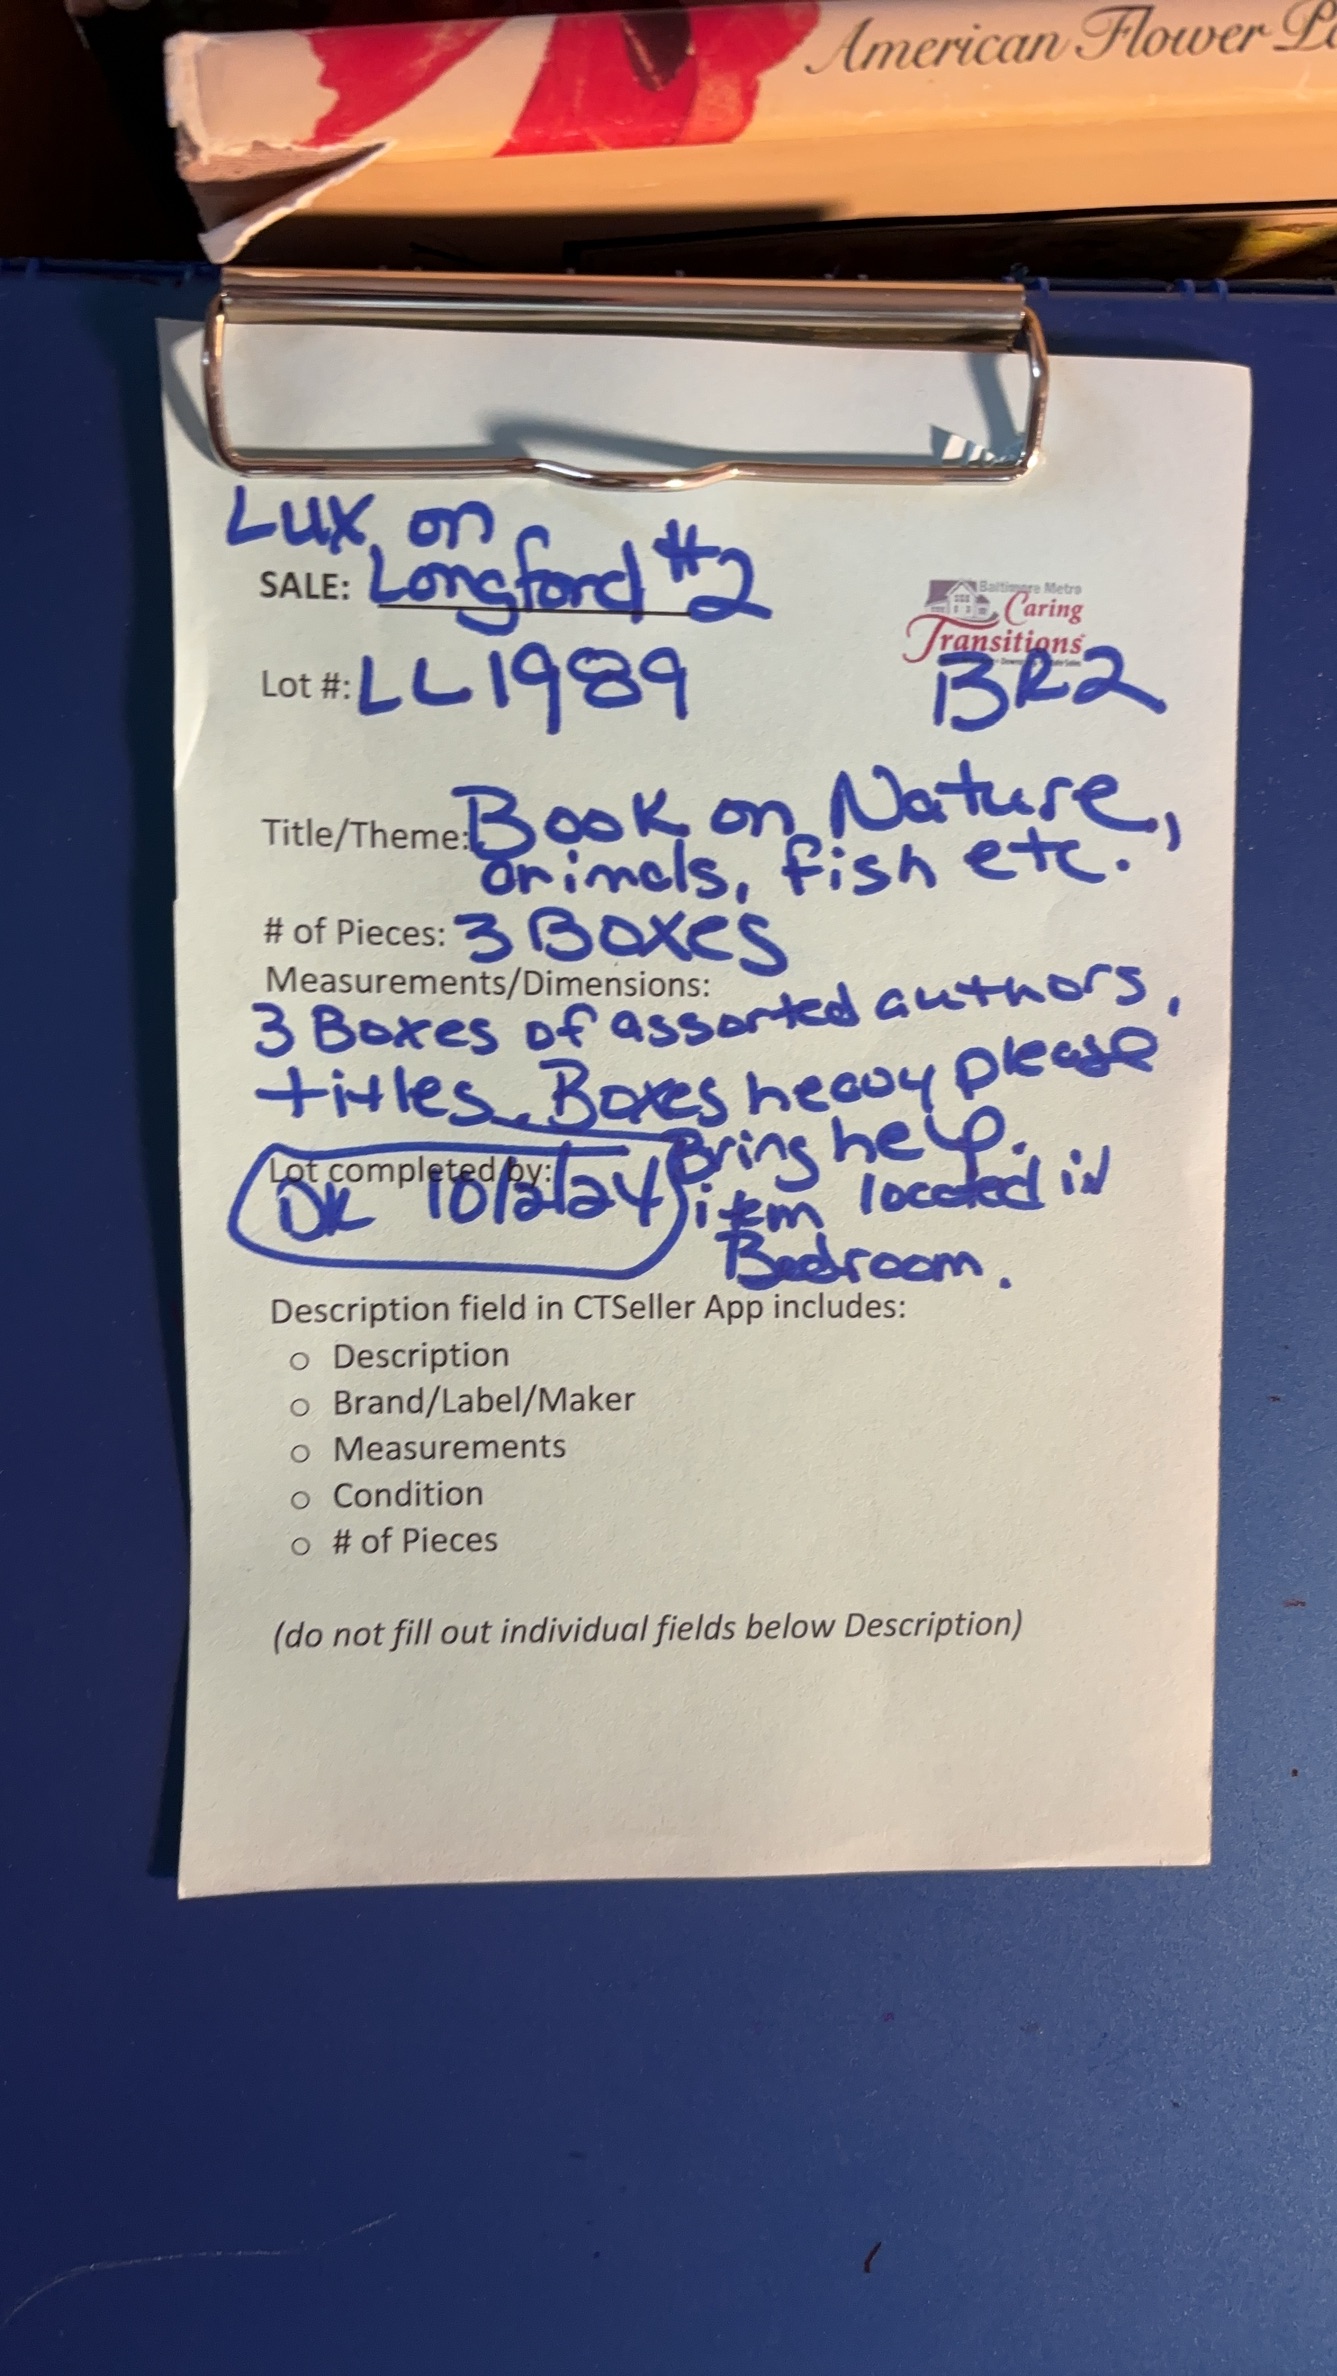 American Flower
Lux on
SALE: Longford #2
Baltimore Metro
Caring
Transitions
Lot #: LL1989
BR2
Title/Theme: Book on Nature,
animals, fish etc.
# of Pieces: 3 Boxes
Measurements/Dimensions:
3 Boxes of assorted authors,
titles. Boxes heavy please
Bring help.
Lot completed by:
DK 10/2/24
item located in
Bedroom.
Description field in CTSeller App includes:
o Description
o Brand/Label/Maker
o Measurements
o Condition
o # of Pieces
(do not fill out individual fields below Description)